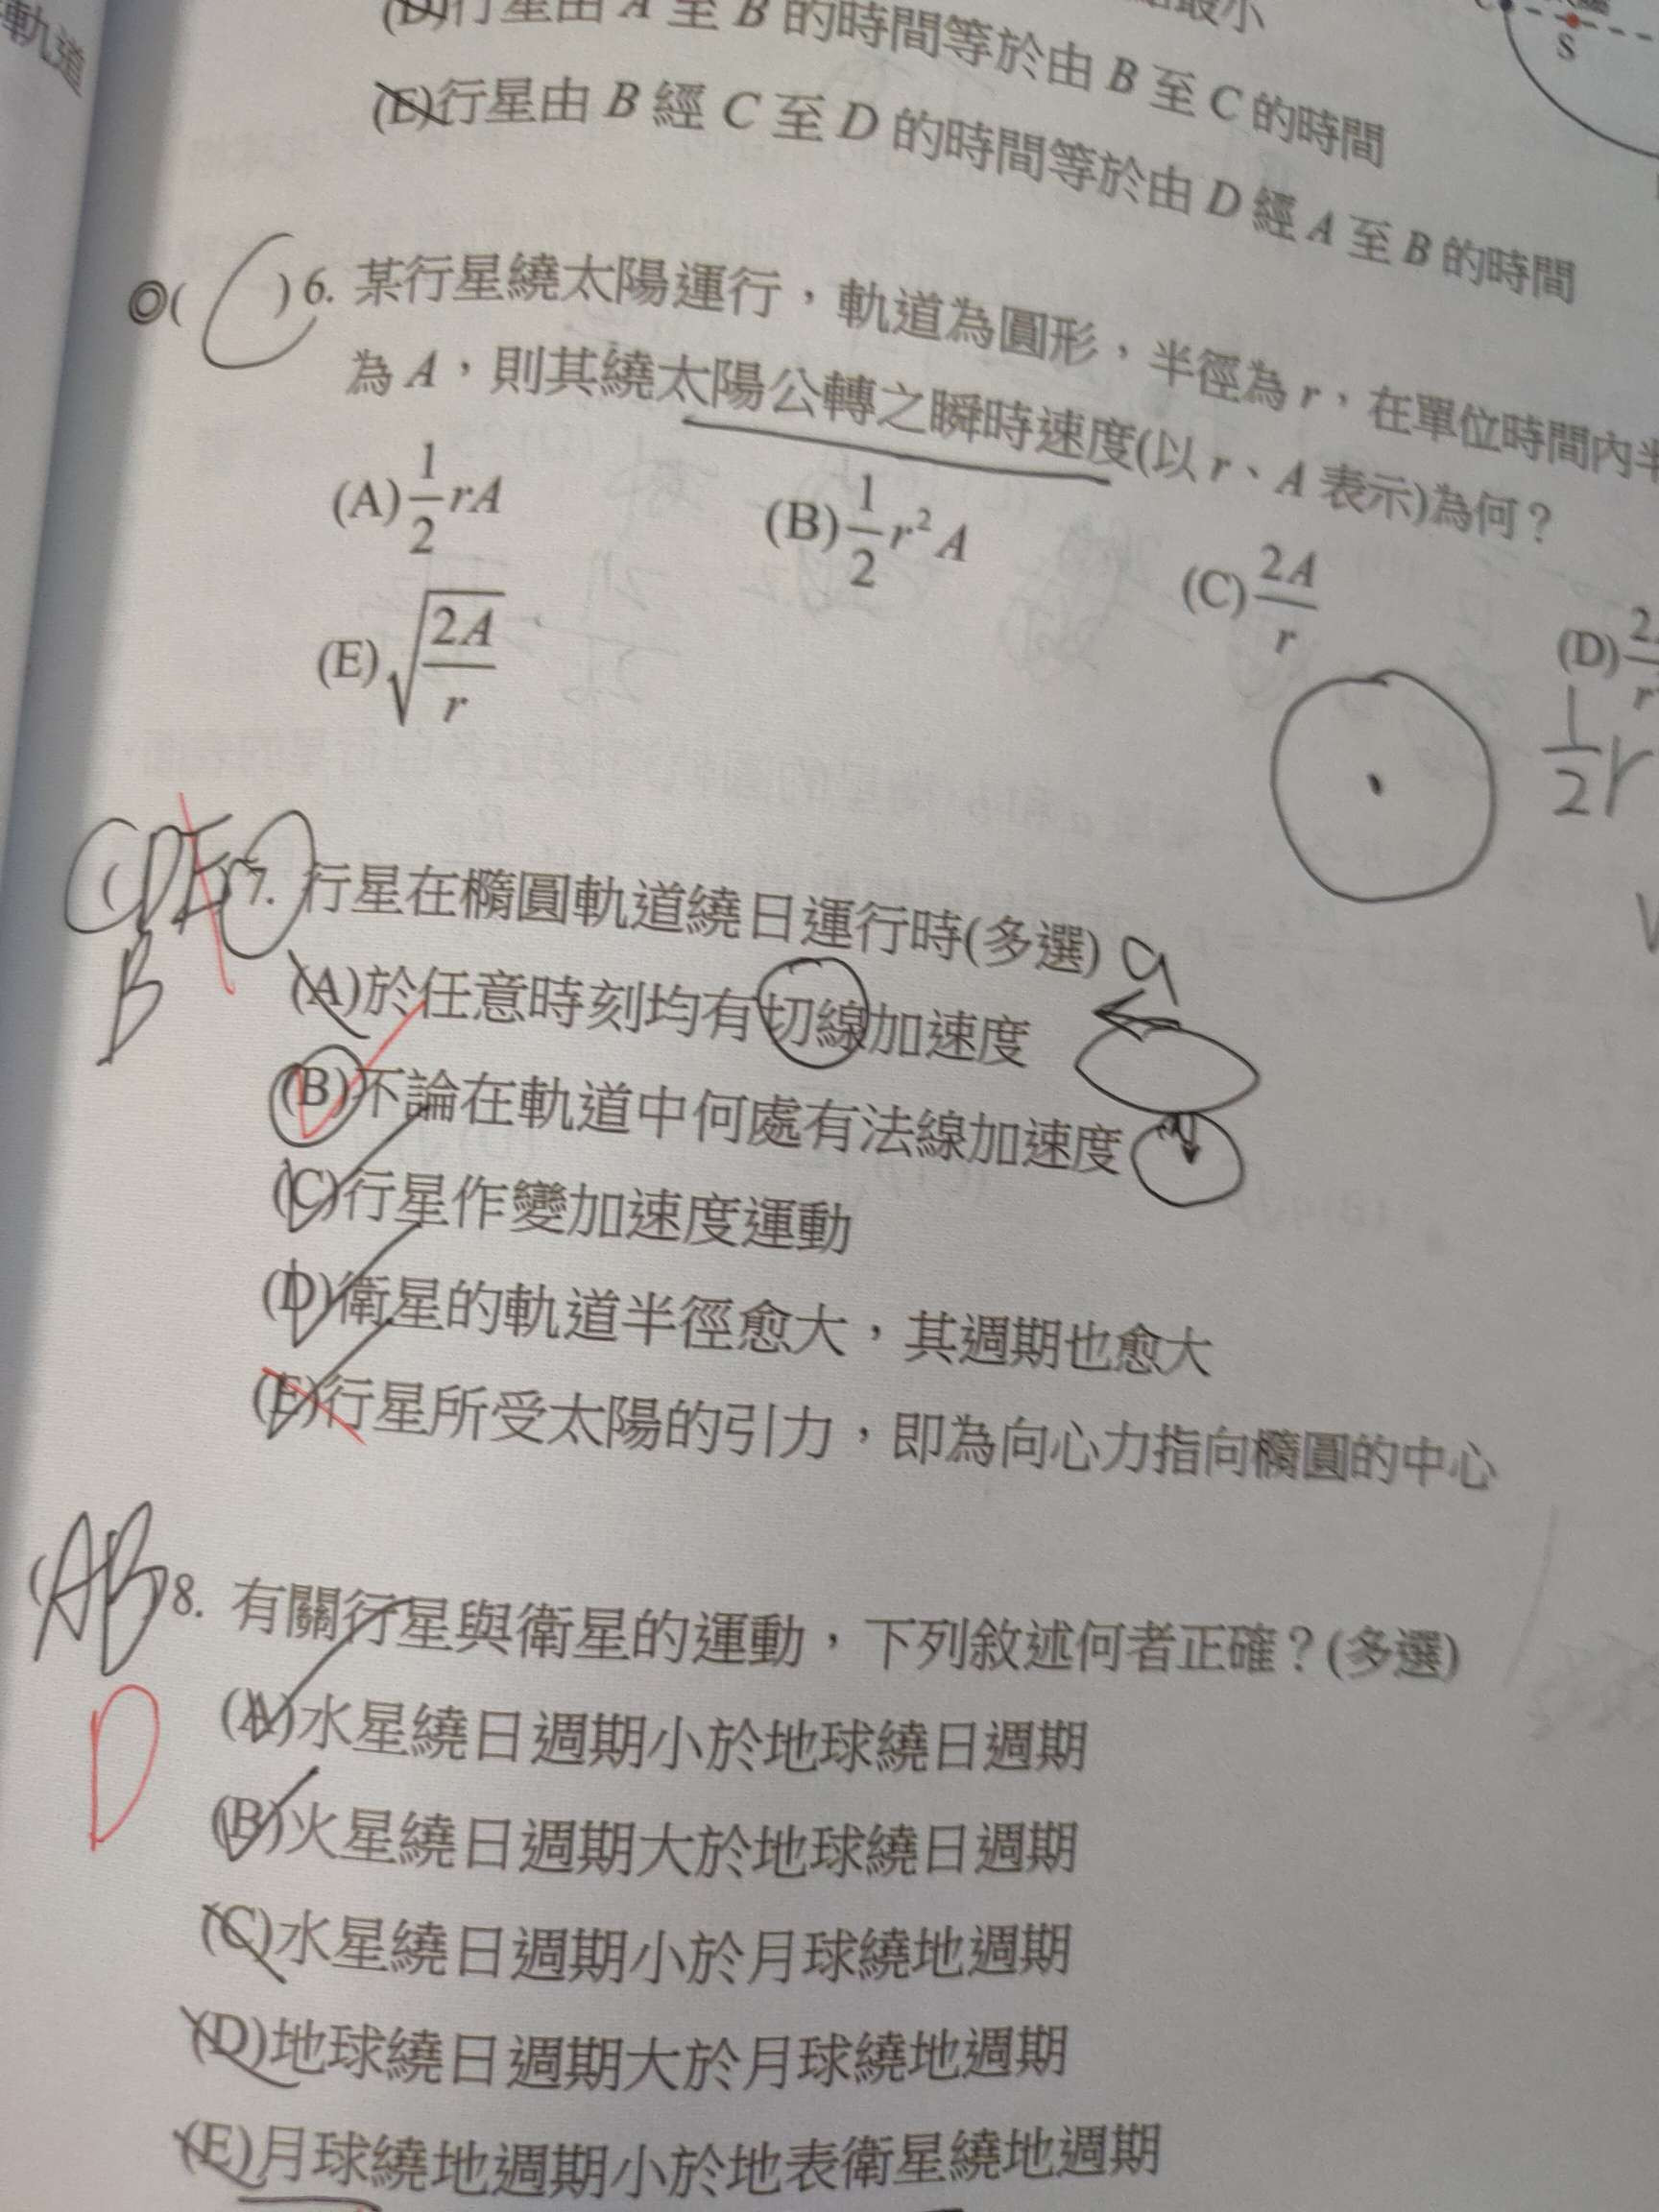 軌道
(D)行星由 A 至 B 的時間等於由 B 至 C 的時間
最小
S
(E)行星由 B 經 C 至 D 的時間等於由 D 經 A 至 B 的時間
◎( C )6. 某行星繞太陽運行，軌道為圓形，半徑為 r，在單位時間內半
為 A，則其繞太陽公轉之瞬時速度(以 r、A 表示)為何？
(A) \frac{1}{2} rA (B) \frac{1}{2} r² A (C) \frac{2A}{r} (D)
(E) \sqrt{\frac{2A}{r}}
\frac{1}{2} r
CDE 7. 行星在橢圓軌道繞日運行時(多選)
B
a
(A)於任意時刻均有切線加速度
(B)不論在軌道中何處有法線加速度
(C)行星作變加速度運動
(D)衛星的軌道半徑愈大，其週期也愈大
(E)行星所受太陽的引力，即為向心力指向橢圓的中心
(AB)8. 有關行星與衛星的運動，下列敘述何者正確？(多選)
D
(A)水星繞日週期小於地球繞日週期
(B)火星繞日週期大於地球繞日週期
(C)水星繞日週期小於月球繞地週期
(D)地球繞日週期大於月球繞地週期
(E)月球繞地週期小於地表衛星繞地週期